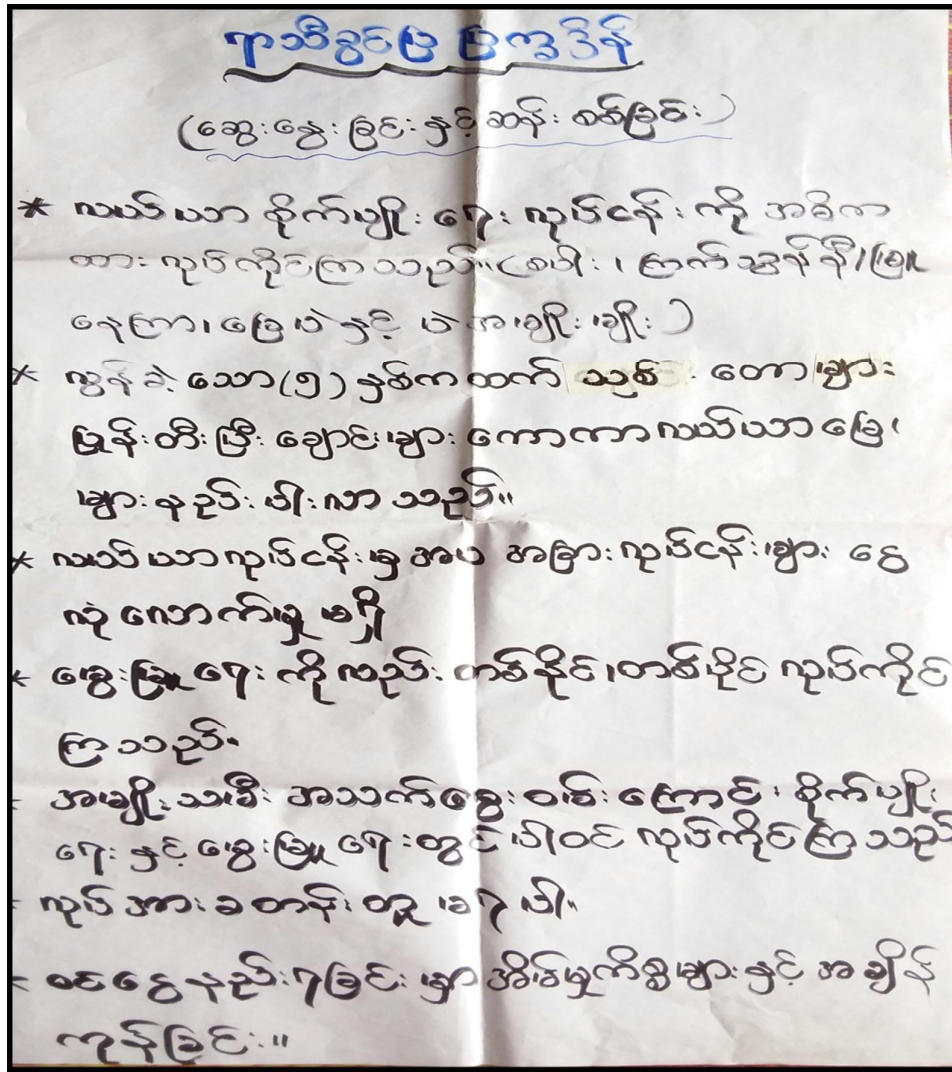 ရာသီခွင်ပြ ပြက္ခဒိန်
(ဆွေးနွေးခြင်းနှင့် ဆန်းစစ်ခြင်း)
* လယ်ယာစိုက်ပျိုးရေးလုပ်ငန်းကို အဓိက
ထားလုပ်ကိုင်ကြသည်။ (စပါး၊ ကြက်သွန်နီ/ဖြူ
နေကြာ၊ မြေပဲနှင့် ပဲအမျိုးမျိုး)
* လွန်ခဲ့သော(၅)နှစ်ကထက် သစ်တောများ
ပြုန်းတီးပြီး ချောင်းများကောကာလယ်ယာမြေ
များနည်းပါးလာသည်။
* လယ်ယာလုပ်ငန်းမှအပ အခြားလုပ်ငန်းများ ငွေ
လုံလောက်မှုမရှိ
* မွေးမြူရေးကိုလည်း တစ်နိုင်၊တစ်ပိုင် လုပ်ကိုင်
ကြသည်။
- အမျိုးသမီး အသက်မွေးဝမ်းကြောင်း စိုက်ပျိုး
ရေးနှင့်မွေးမြူရေးတွင် ပါဝင်လုပ်ကိုင်ကြသည်
- လုပ်အားခတန်းတူမရပါ။
- ဝင်ငွေနည်းရခြင်းမှာ အိမ်မှုကိစ္စများနှင့် အချိန်
ကုန်ခြင်း။